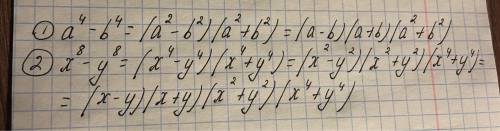 ① a⁴ - b⁴ = (a² - b²)(a² + b²) = (a - b)(a + b)(a² + b²)
② x⁸ - y⁸ = (x⁴ - y⁴)(x⁴ + y⁴) = (x² - y²)(x² + y²)(x⁴ + y⁴) =
= (x - y)(x + y)(x² + y²)(x⁴ + y⁴)